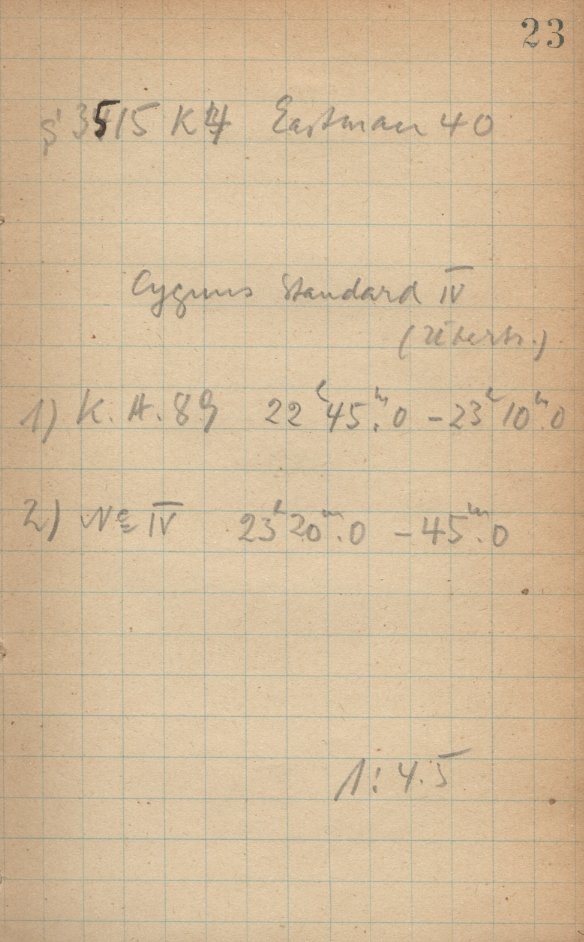 23
S 3515 K 4 Eastman 40
Cygnus Standard IV
(Übertr.)
1) K. A. 89 22ʰ45ᵐ.0 – 23ʰ10ᵐ.0
2) № IV 23ʰ20ᵐ.0 – 45ᵐ.0
1:4.5